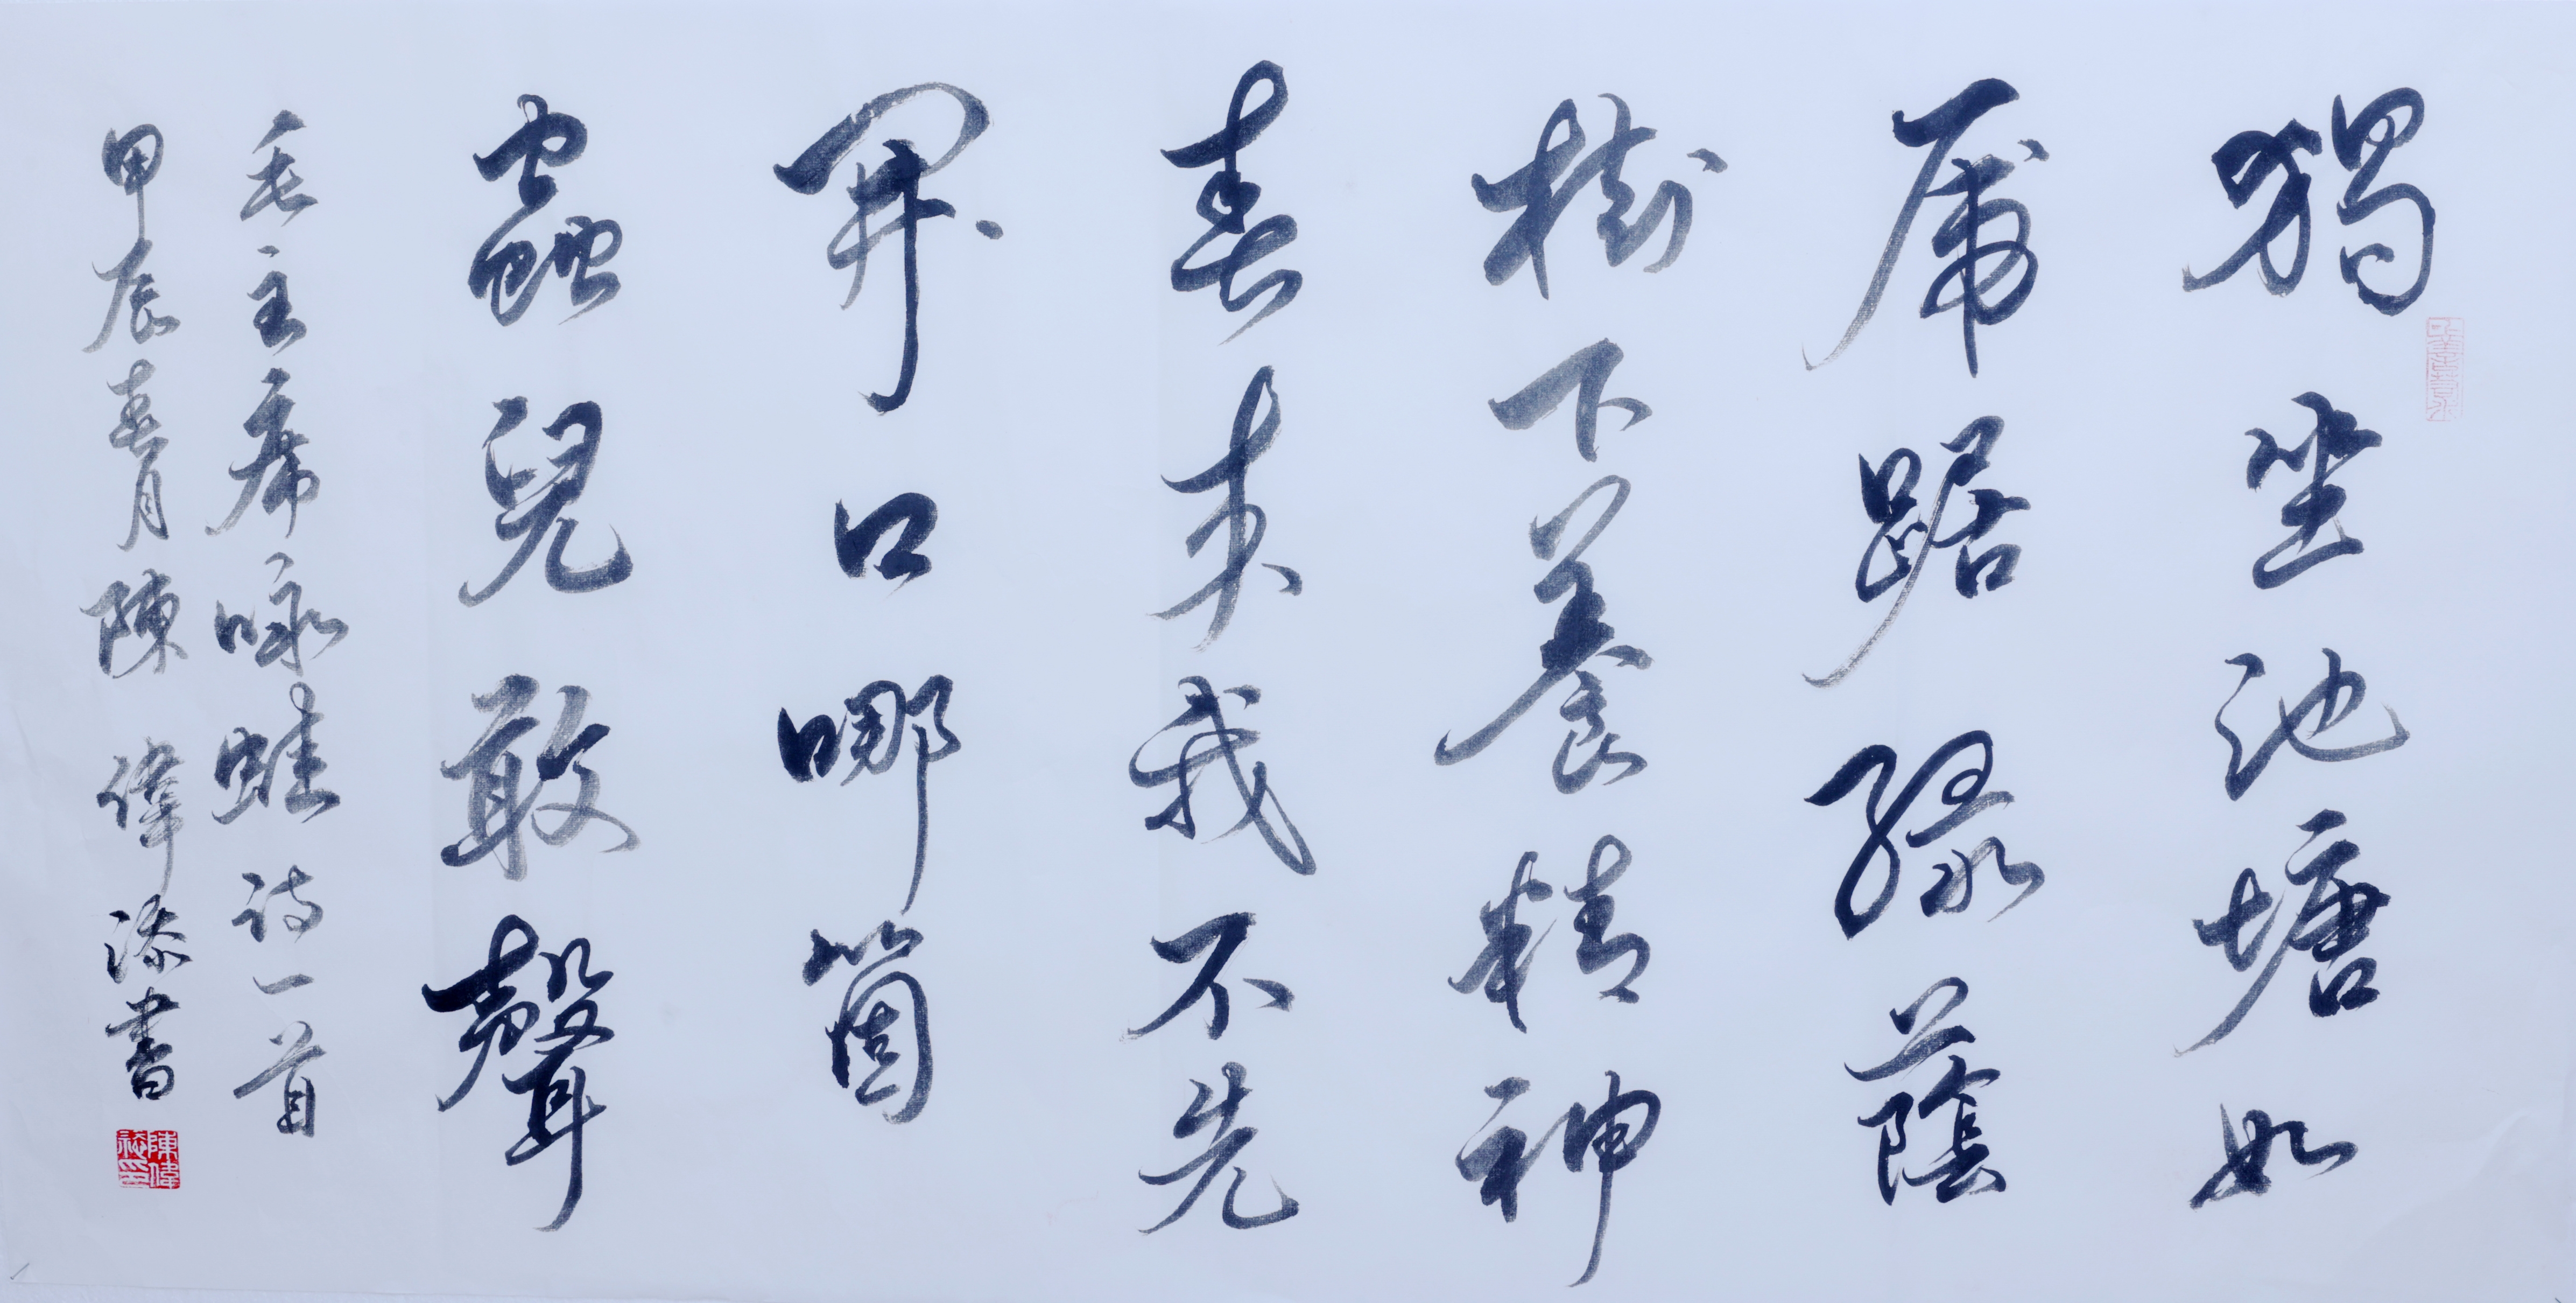 獨坐池塘如
虎踞綠蔭
樹下養精神
春來我不先
開口哪箇
蟲兒敢聲
毛主席咏蛙诗一首
甲辰春月陳偉添書
陳偉